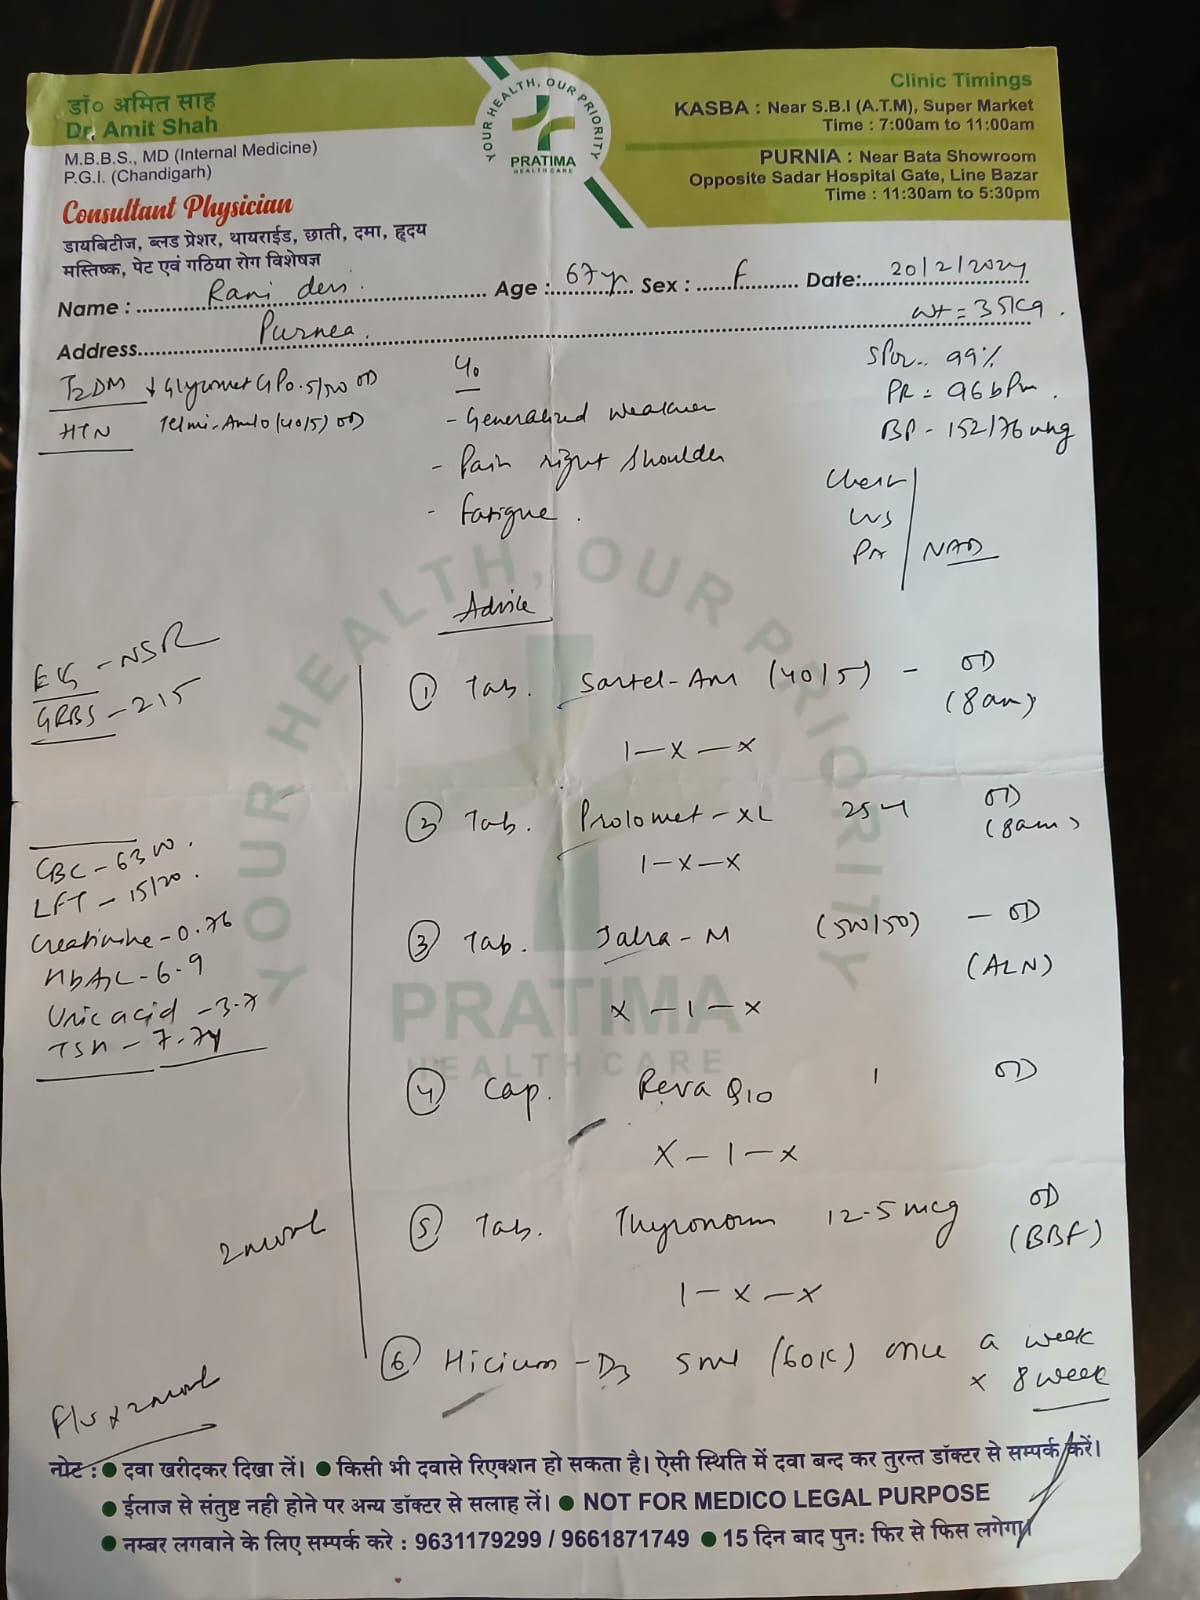 डॉ० अमित साह
Dr. Amit Shah
M.B.B.S., MD (Internal Medicine)
P.G.I. (Chandigarh)
Consultant Physician
डायबिटीज, ब्लड प्रेशर, थायराईड, छाती, दमा, हृदय
मस्तिष्क, पेट एवं गठिया रोग विशेषज्ञ
YOUR HEALTH, OUR PRIORITY
PRATIMA
HEALTH CARE
Clinic Timings
KASBA : Near S.B.I (A.T.M), Super Market
Time : 7:00am to 11:00am
PURNIA : Near Bata Showroom
Opposite Sadar Hospital Gate, Line Bazar
Time : 11:30am to 5:30pm
Name : Rani devi Age : 67yr Sex : F Date: 20/2/2024
Address Purnea.
Wt = 35kg.
T2DM Glycomet GP 0.5/500 OD
HTN Telmi-Amlo (40/5) OD
- Generalized weakness
- Pain right shoulder
- Fatigue.
SPO2 99%
PR = 96 bpm.
BP - 152/76 mmHg
Chest
PA NAD
Advice
- NSR
GRBS - 215
CBC -
LFT - 15/20.
Creatinine - 0.76
HbA1C - 6.9
Uric acid - 3.7
TSH - 7.74
① Tab. Sartel-Am (40/5) - OD
(8am)
1-x-x
② Tab. Prolomet-XL 25 OD
(8am)
1-x-x
③ Tab. Jalra-M (500/50) - OD
(ALN)
x-1-x
④ Cap. Reva Q10 1 OD
x-1-x
⑤ Tab. Thyronorm 12.5 mcg OD
(BBF)
1-x-x
⑥ Hicium-D3 5ml (60K) once a week
x 8 week
YOUR HEALTH, OUR PRIORITY
PRATIMA
HEALTH CARE
नोट : ● दवा खरीदकर दिखा लें। ● किसी भी दवासे रिएक्शन हो सकता है। ऐसी स्थिति में दवा बन्द कर तुरन्त डॉक्टर से सम्पर्क करें।
● ईलाज से संतुष्ट नही होने पर अन्य डॉक्टर से सलाह लें। ● NOT FOR MEDICO LEGAL PURPOSE
● नम्बर लगवाने के लिए सम्पर्क करे : 9631179299 / 9661871749 ● 15 दिन बाद पुनः फिर से फिस लगेगा।